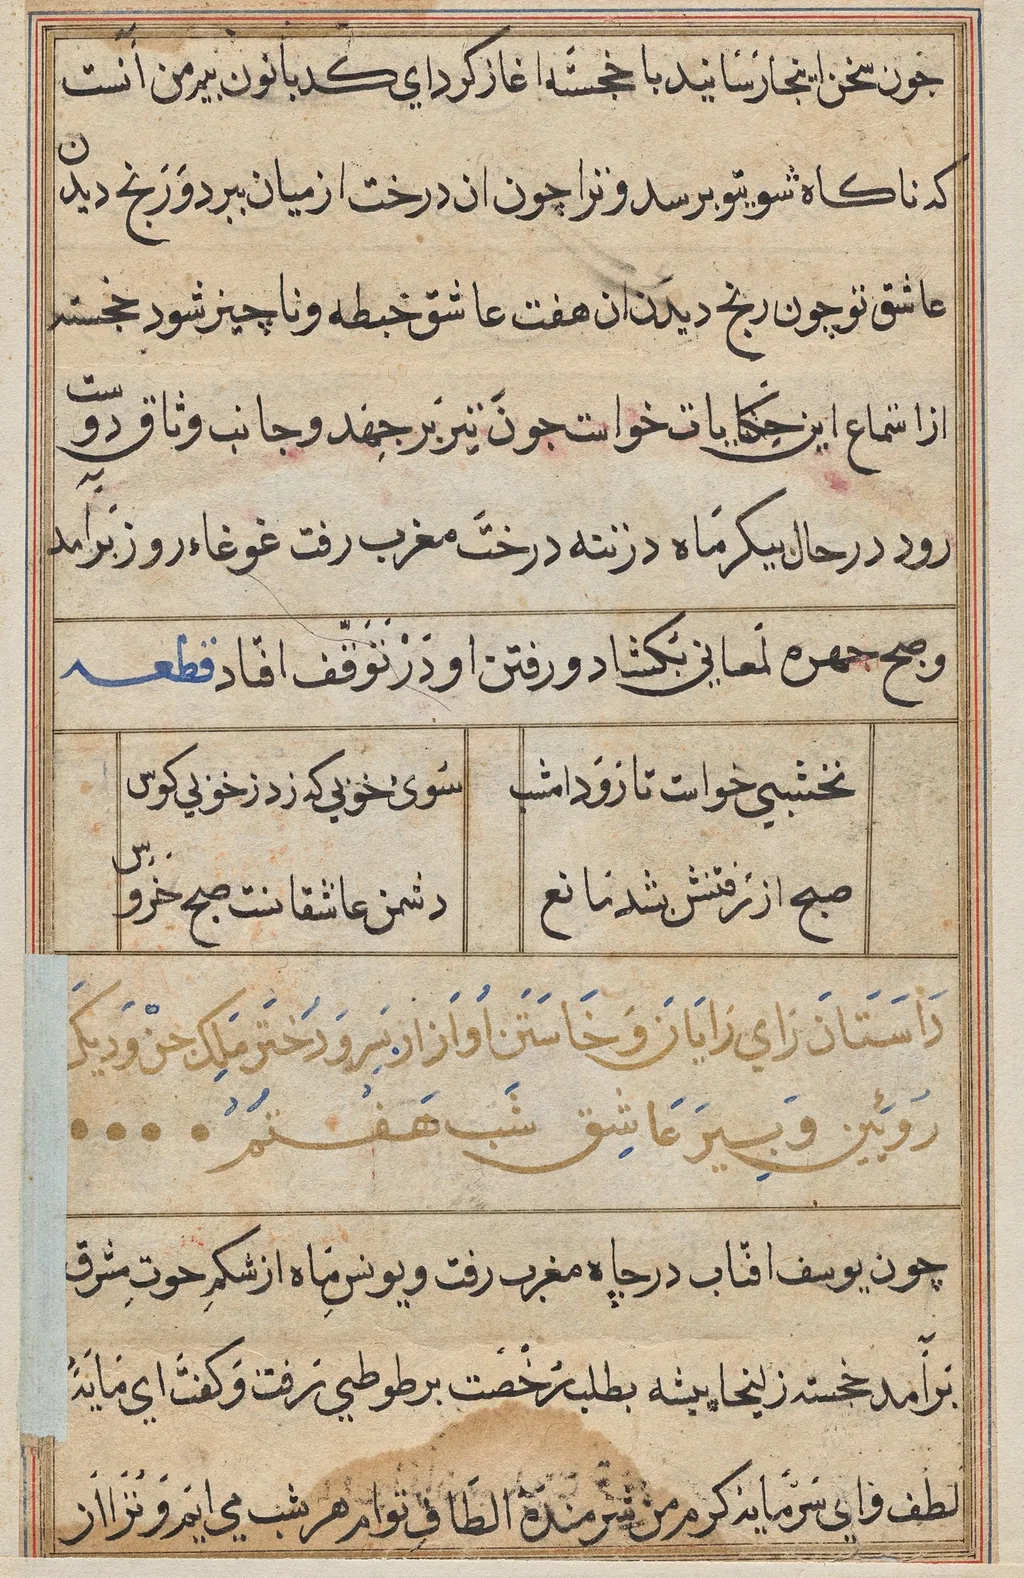 چون سخن اینجا رسانید با خجسته اغاز کرد ای کدبانو بیر من آنست
که ناکاه شوی تو برسد و ترا چون ان درخت از میان ببرد و رنج دیدن
عاشق تو چون رنج دیدن ان هفت عاشق خبطه و ناچیز شود خجسته
از استماع این حکایات خواست جون تیر بر جهد و جانب وثاق دوست
رود در حال بیکر ماه در تنه درخت مغرب رفت غوغاء روز برآمد
و صبح چهره لمعانی بکشاد و رفتن او در توقف افتاد قطعه
نخشبی خواست تا رود امشب
سوی خوبی که زد ز خوبی کوس
صبح از رفتنش بشد مانع
دشمن عاشقانست صبح خروس
داستان رای رایان و خاستن اواز از بسر و دختر ملک جن و دیکر
رویین و بسیر عاشق شب هفتم
چون یوسف افتاب در چاه مغرب رفت و یونس ماه از شکم حوت مشرق
برآمد خجسته زلیخا پیشه بطلب رخصت بر طوطی رفت و کفت ای مایهٔ
لطف و ای سرمایه کرم من شرمندهٔ الطاف توام هر شب می ایم و ترا از